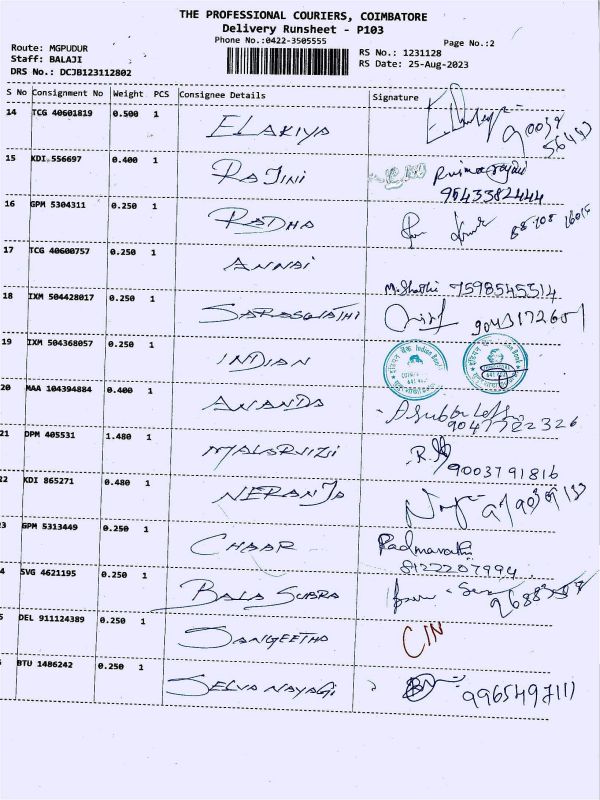 THE PROFESSIONAL COURIERS, COIMBATORE
Delivery Runsheet - P103
Phone No.:0422-3505555
Page No.:2
Route: MGPUDUR
Staff: BALAJI
DRS No.: DCJB123112802
RS No.: 1231128
RS Date: 25-Aug-2023
S No Consignment No Weight PCS Consignee Details Signature
14 TCG 40601819 0.500 1 ELAKIYA
15 KDI 556697 0.400 1 RAJINI
9543382444
16 GPM 5304311 0.250 1 RADHA
17 TCG 40600757 0.250 1 ANNAI
M. Shanthi 7598545514
18 IXM 504428017 0.250 1 SARASWATHI
19 IXM 504368057 0.250 1 INDIAN
Indian Bank
20 MAA 104394884 0.400 1 ANANDA
9047722326
21 DPM 405531 1.480 1 MALARVIZI
9003791816
22 KDI 865271 0.480 1 NERANJA
3 GPM 5313449 0.250 1 CHAAR
Padmavathi
8122207994
4 SVG 4621195 0.250 1 BALA SUBRA
5 DEL 911124389 0.250 1 SANGEETHA
CIN
BTU 1486242 0.250 1 SELVANAYAGI
9965497111